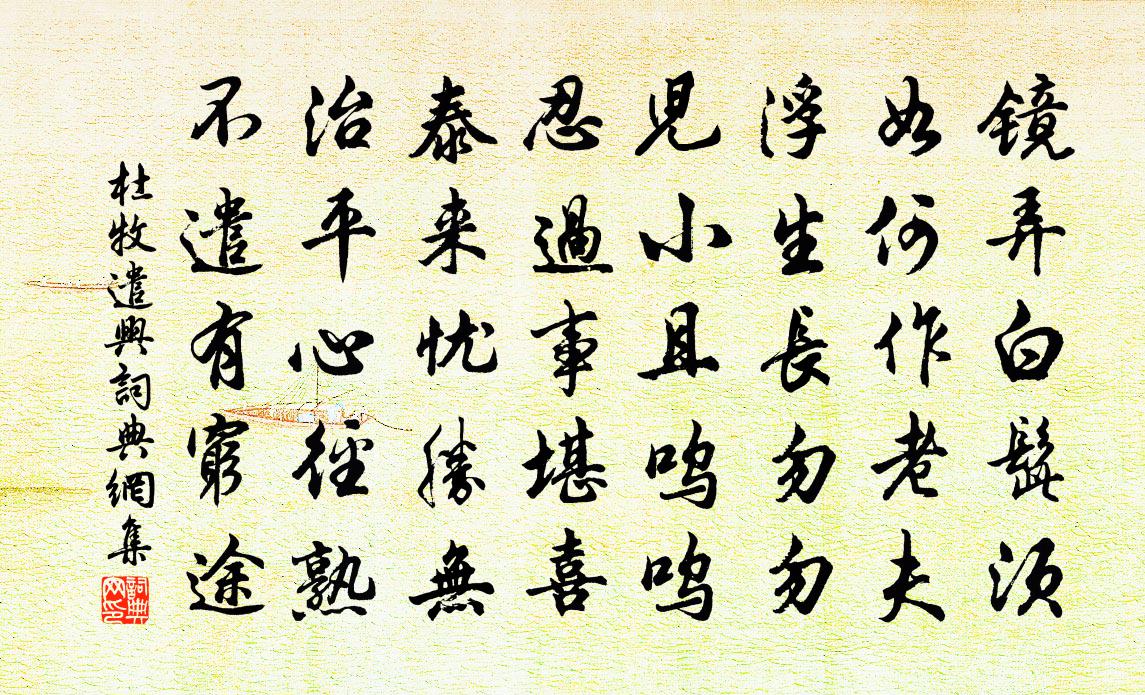 镜弄白髭须
如何作老夫
浮生長勿勿
児小且呜呜
忍過事堪喜
泰来忧勝無
治平心径熟
不遣有窮途
杜牧遣興詞典網集
詞典网印